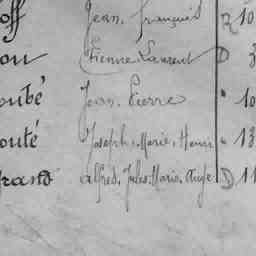 off Jean, françois 2 10
ou Etienne Laurent D 3
oubé Jean. Pierre " 10
outé Joseph. Marie. Henri " 13
rand alfred. Jules. Marie. Ange D 11